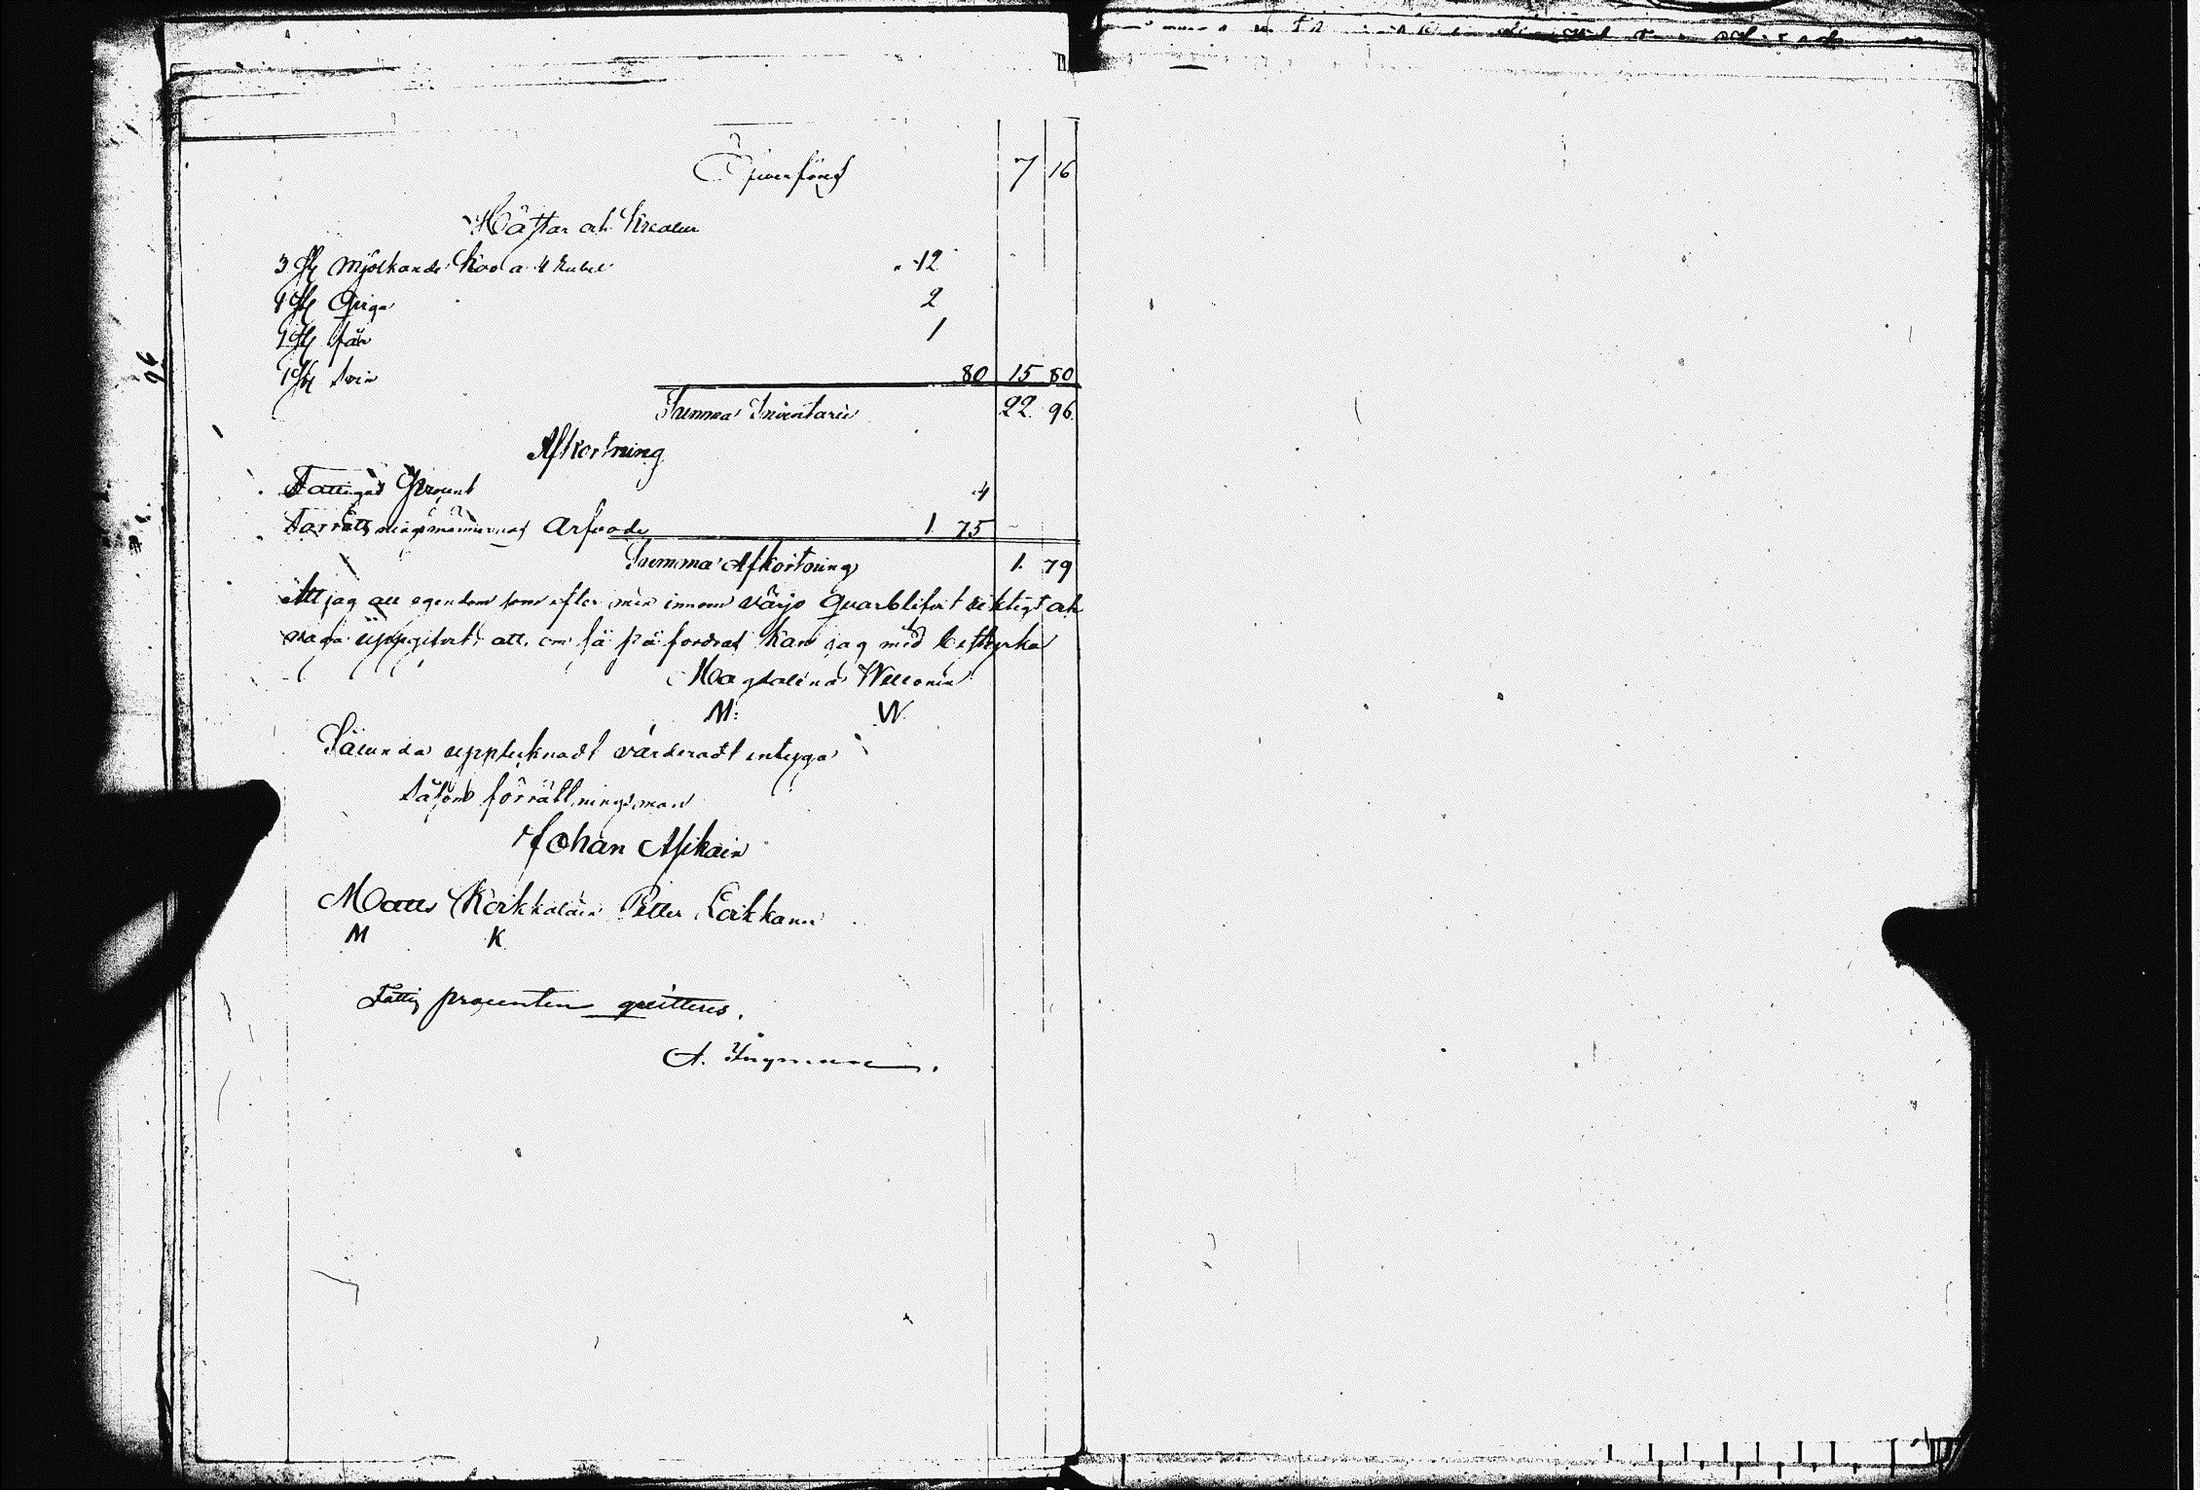 Öfwerförd 7 16
Hästar och Kreatur
3 st mjölkande Koo a 4 Rubel 12
1 st Qviga 2
1 st får 1
1 st Svin 80 15 80
Summa Inventarie 22 96
Afkortning
Fattiges Procent 4
Förrättningsmännernas Arfvode 1 75
Summa Afkortning 1 79
Att jag all egendom som efter min innom värjo quarblifvit riktigt och
noga uppgifvit att om så på fordras kan jag med bestyrka
Magdalena
M: W.
Sålunda upptecknadt värderadt intyga
såsom förrättningsman
Johan Asikain
Matts Korkkalain Petter
M K
Fattig procenten quitteras.
A. Ingman.
96